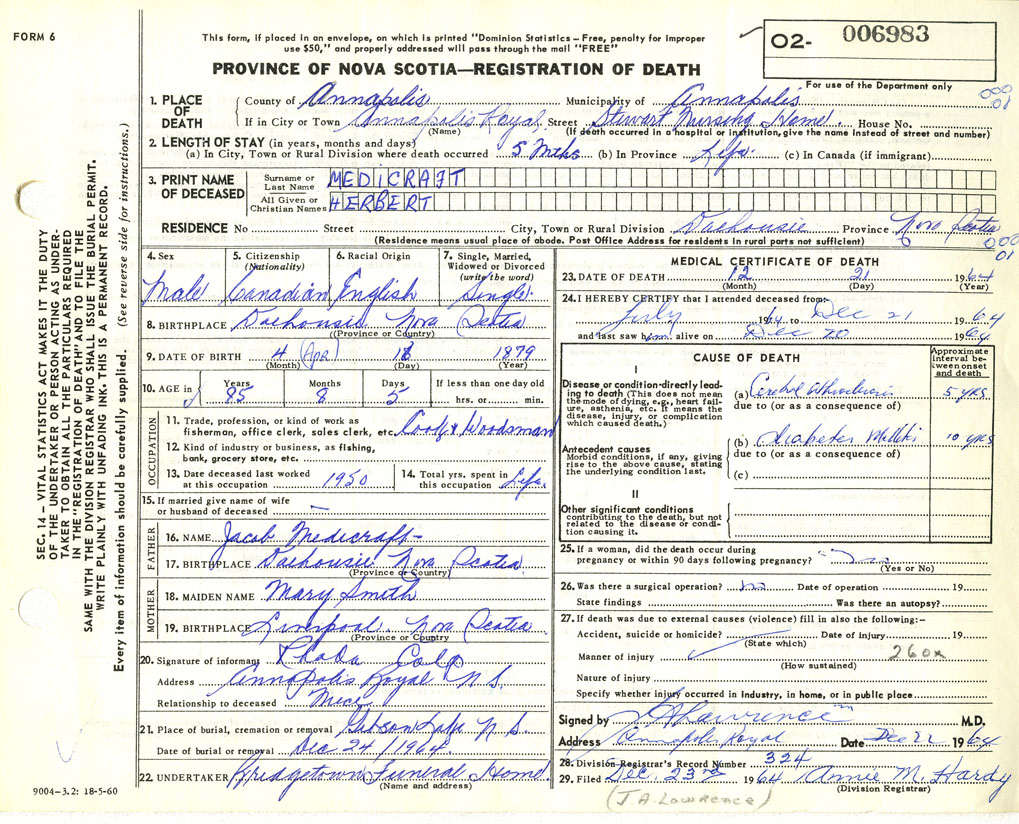 FORM 6
This form, if placed in an envelope, on which is printed "Dominion Statistics – Free, penalty for improper
use $50," and properly addressed will pass through the mail "FREE"
02- 006983
For use of the Department only
PROVINCE OF NOVA SCOTIA—REGISTRATION OF DEATH
000
01
1. PLACE OF DEATH
County of Annapolis Municipality of Annapolis
If in City or Town Annapolis Royal Street Stewart Nursing Home House No.
(Name) (If death occurred in a hospital or institution, give the name instead of street and number)
2. LENGTH OF STAY (in years, months and days)
(a) In City, Town or Rural Division where death occurred 5 Mths (b) In Province Life (c) In Canada (if immigrant)
3. PRINT NAME OF DECEASED
Surname or Last Name MEDICRAFT
All Given or Christian Names HERBERT
RESIDENCE No Street City, Town or Rural Division Dalhousie Province Nova Scotia
(Residence means usual place of abode. Post Office Address for residents in rural parts not sufficient)
000
01
4. Sex
Male
5. Citizenship
(Nationality)
Canadian
6. Racial Origin
English
7. Single, Married,
Widowed or Divorced
(write the word)
Single
8. BIRTHPLACE Dalhousie Nova Scotia
(Province or Country)
9. DATE OF BIRTH 4 (Apr) 16 1879
(Month) (Day) (Year)
10. AGE in
Years Months Days If less than one day old
85 8 5 hrs. or min.
OCCUPATION
11. Trade, profession, or kind of work as
fisherman, office clerk, sales clerk, etc. Cook & Woodsman
12. Kind of industry or business, as fishing,
bank, grocery store, etc.
13. Date deceased last worked
at this occupation 1950
14. Total yrs. spent in
this occupation Life
15. If married give name of wife
or husband of deceased —
FATHER
16. NAME Jacob Medicraft
17. BIRTHPLACE Dalhousie Nova Scotia
(Province or Country)
MOTHER
18. MAIDEN NAME Mary Smith
19. BIRTHPLACE Liverpool Nova Scotia
(Province or Country)
20. Signature of informant Rhoda Colp
Address Annapolis Royal N S
Relationship to deceased Niece
21. Place of burial, cremation or removal Gibson Lake N S.
Date of burial or removal Dec 24/1964
22. UNDERTAKER Bridgetown Funeral Home
(Name and address)
9004–3.2: 18-5-60
MEDICAL CERTIFICATE OF DEATH
23. DATE OF DEATH 12 21 1964
(Month) (Day) (Year)
24. I HEREBY CERTIFY that I attended deceased from:
July 1964 to Dec 21 1964
and last saw him alive on Dec 20 1964
CAUSE OF DEATH
Approximate
interval be-
tween onset
and death
I
Disease or condition directly lead-
ing to death (This does not mean
the mode of dying, e.g., heart fail-
ure, asthenia, etc. It means the
disease, injury, or complication
which caused death.)
(a) 5 yrs
due to (or as a consequence of)
(b) Diabetes 10 yrs
due to (or as a consequence of)
(c)
Antecedent causes
Morbid conditions, if any, giving
rise to the above cause, stating
the underlying condition last.
II
Other significant conditions
contributing to the death, but not
related to the disease or condi-
tion causing it.
25. If a woman, did the death occur during
pregnancy or within 90 days following pregnancy?
(Yes or No)
26. Was there a surgical operation? no Date of operation 19
State findings Was there an autopsy?
27. If death was due to external causes (violence) fill in also the following:–
Accident, suicide or homicide? Date of injury 19
(State which)
Manner of injury 260x
(How sustained)
Nature of injury
Specify whether injury occurred in industry, in home, or in public place
Signed by J A Lawrence M.D.
Address Annapolis Royal Date Dec 22 1964
28. Division Registrar's Record Number 324
29. Filed Dec. 23rd 1964 Annie M. Hardy
(Division Registrar)
(J A LAWRENCE)
SEC. 14 – VITAL STATISTICS ACT MAKES IT THE DUTY
OF THE UNDERTAKER OR PERSON ACTING AS UNDER-
TAKER TO OBTAIN ALL THE PARTICULARS REQUIRED
IN THE "REGISTRATION OF DEATH" AND TO FILE THE
SAME WITH THE DIVISION REGISTRAR WHO SHALL ISSUE THE BURIAL PERMIT.
WRITE PLAINLY WITH UNFADING INK. THIS IS A PERMANENT RECORD.
Every item of information should be carefully supplied. (See reverse side for instructions.)